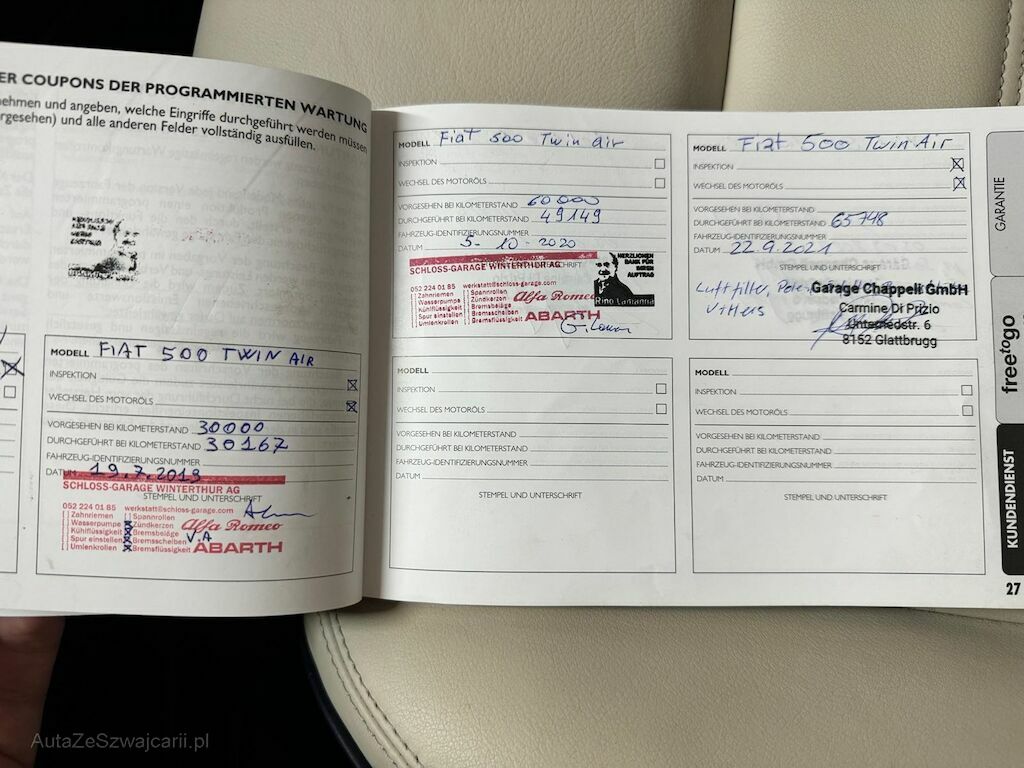 ER COUPONS DER PROGRAMMIERTEN WARTUNG
ehmen und angeben, welche Eingriffe durchgeführt werden müssen
rgesehen) und alle anderen Felder vollständig ausfüllen.
MODELL FIAT 500 TWIN AIR
INSPEKTION
WECHSEL DES MOTORÖLS
VORGESEHEN BEI KILOMETERSTAND 30000
DURCHGEFÜHRT BEI KILOMETERSTAND 30167
FAHRZEUG-IDENTIFIZIERUNGSNUMMER
DATUM 19.7.2019
SCHLOSS-GARAGE WINTERTHUR AG
STEMPEL UND UNTERSCHRIFT
052 224 01 85 werkstatt@schloss-garage.com
[ ] Zahnriemen [ ] Spannrollen
[ ] Wasserpumpe [x] Zündkerzen Alfa Romeo
[ ] Kühlflüssigkeit [x] Bremsbeläge
[ ] Spur einstellen [x] Bremsscheiben V.A
[ ] Umlenkrollen [x] Bremsflüssigkeit ABARTH
MODELL Fiat 500 Twin air
INSPEKTION
WECHSEL DES MOTORÖLS
VORGESEHEN BEI KILOMETERSTAND 60000
DURCHGEFÜHRT BEI KILOMETERSTAND 49149
FAHRZEUG-IDENTIFIZIERUNGSNUMMER
DATUM 5-10-2020
SCHLOSS-GARAGE WINTERTHUR AG
052 224 01 85 werkstatt@schloss-garage.com
[ ] Zahnriemen [ ] Spannrollen
[ ] Wasserpumpe [ ] Zündkerzen Alfa Romeo
[ ] Kühlflüssigkeit [ ] Bremsbeläge
[ ] Spur einstellen [ ] Bremsscheiben ABARTH
[ ] Umlenkrollen [ ] Bremsflüssigkeit
HERZLICHEN
DANK FÜR
IHREN
AUFTRAG
Rino
MODELL Fiat 500 Twin Air
INSPEKTION
WECHSEL DES MOTORÖLS
VORGESEHEN BEI KILOMETERSTAND
DURCHGEFÜHRT BEI KILOMETERSTAND 65748
FAHRZEUG-IDENTIFIZIERUNGSNUMMER
DATUM 22.9.2021
STEMPEL UND UNTERSCHRIFT
Luftfilter,
Garage Chappell GmbH
Carmine Di Prizio
Unterriedstr. 6
8152 Glattbrugg
MODELL
INSPEKTION
WECHSEL DES MOTORÖLS
VORGESEHEN BEI KILOMETERSTAND
DURCHGEFÜHRT BEI KILOMETERSTAND
FAHRZEUG-IDENTIFIZIERUNGSNUMMER
DATUM
STEMPEL UND UNTERSCHRIFT
MODELL
INSPEKTION
WECHSEL DES MOTORÖLS
VORGESEHEN BEI KILOMETERSTAND
DURCHGEFÜHRT BEI KILOMETERSTAND
FAHRZEUG-IDENTIFIZIERUNGSNUMMER
DATUM
STEMPEL UND UNTERSCHRIFT
GARANTIE
freetogo
KUNDENDIENST
27
AutaZeSzwajcarii.pl